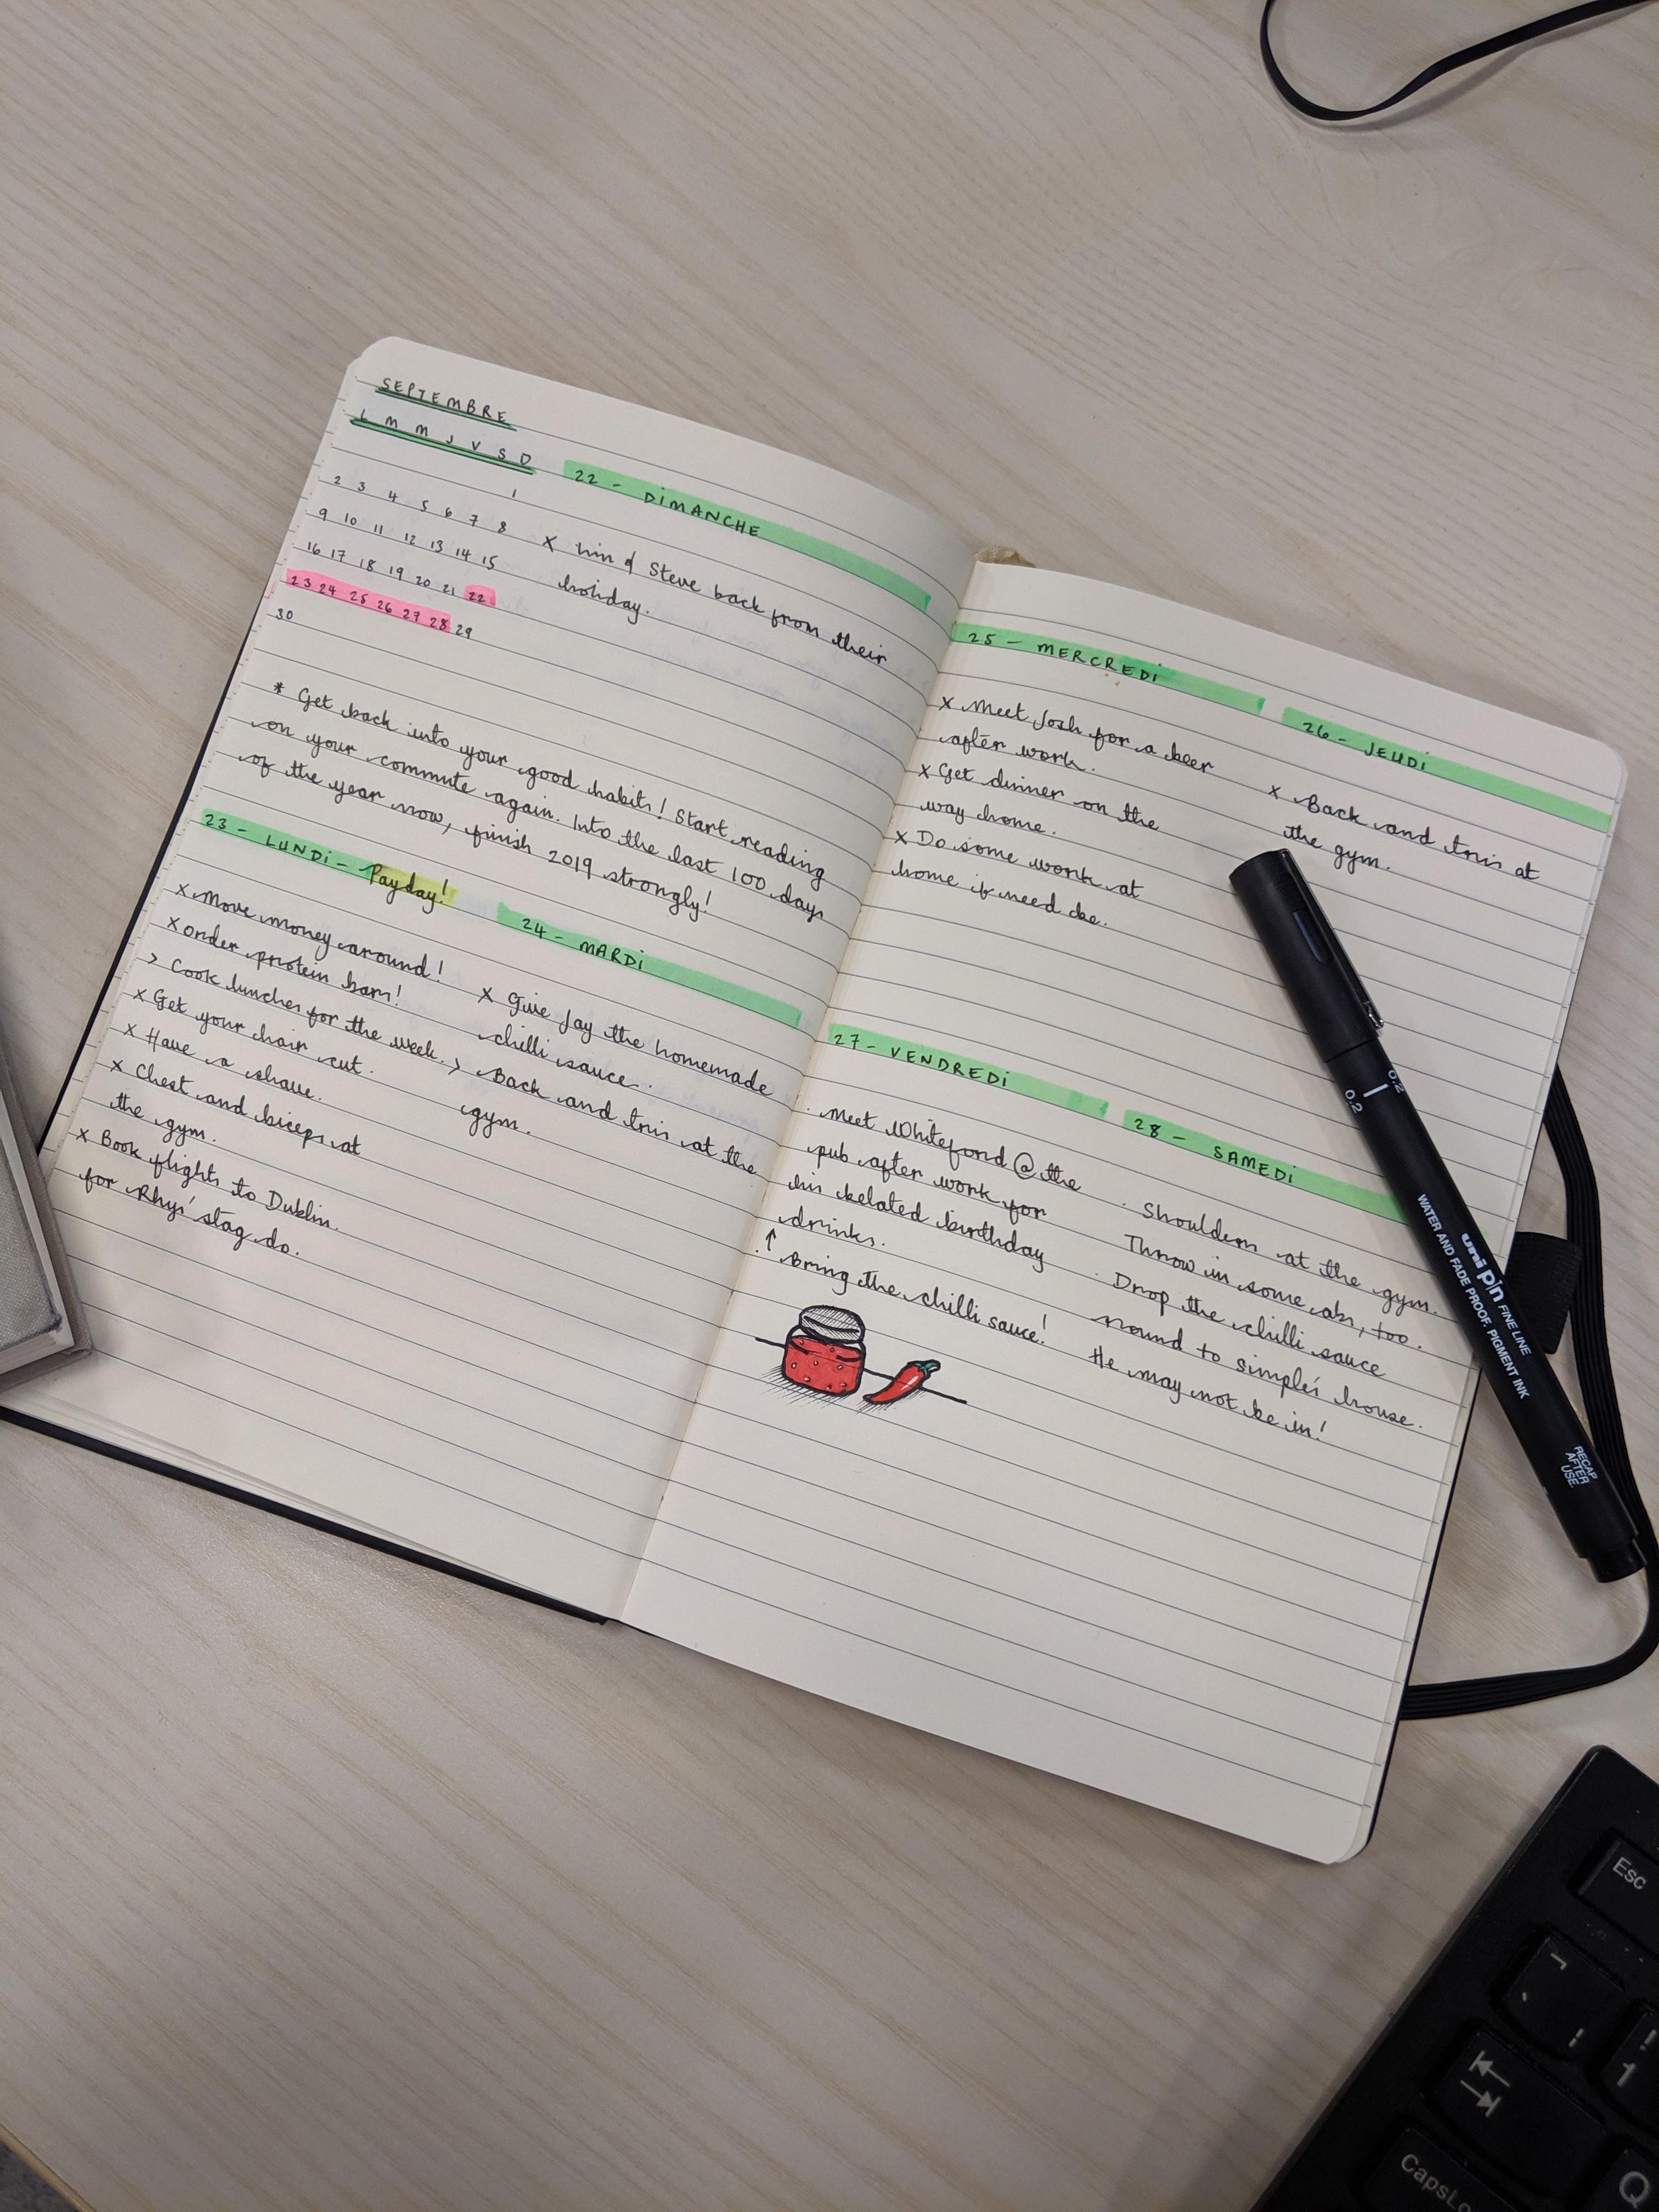 SEPTEMBRE
L M M J V S D
1
2 3 4 5 6 7 8
9 10 11 12 13 14 15
16 17 18 19 20 21 22
23 24 25 26 27 28 29
30
22 - DIMANCHE
x & Steve back from their
holiday.
* Get back into your good habits! Start reading
on your commute again. Into the last 100 days
of the year now, finish 2019 strongly!
23 - LUNDI - Payday!
x Move money around!
x order protein bars!
> Cook lunches for the week.
x Get your hair cut.
x Have a shave.
x Chest and biceps at
the gym.
x Book flights to Dublin
for Rhys' stag do.
24 - MARDI
x Give Jay the homemade
chilli sauce.
> Back and tris at the
gym.
25 - MERCREDI
x Meet Josh for a beer
after work.
x Get dinner on the
way home.
x Do some work at
home if need be.
26 - JEUDI
x Back and tris at
the gym.
27 - VENDREDI
· Meet Whiteford @ the
pub after work for
his belated birthday
drinks.
· ↑ Bring the chilli sauce!
28 - SAMEDI
· Shoulders at the gym.
Throw in some abs, too.
· Drop the chilli sauce
round to simple's house.
He may not be in!
0.2
0.2
uni pin FINE LINE
WATER AND FADE PROOF, PIGMENT INK
RECAP
AFTER
USE
Esc
¬
!
1
CapsLo
Q